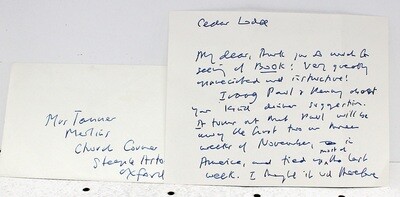 Mrs Tanner
Merlins
Church Corner
Steeple Aston
Oxford
Cedar Lodge
My dear, Thank you so much for
seeing of BOOK! Very greatly
appreciated and instructive!
I Paul & Henry about
your kind dinner suggestion.
It turns out that Paul will be
away the first two or three
weeks of November, in
most of
America, and tied up the last
week. I thought it wd therefore